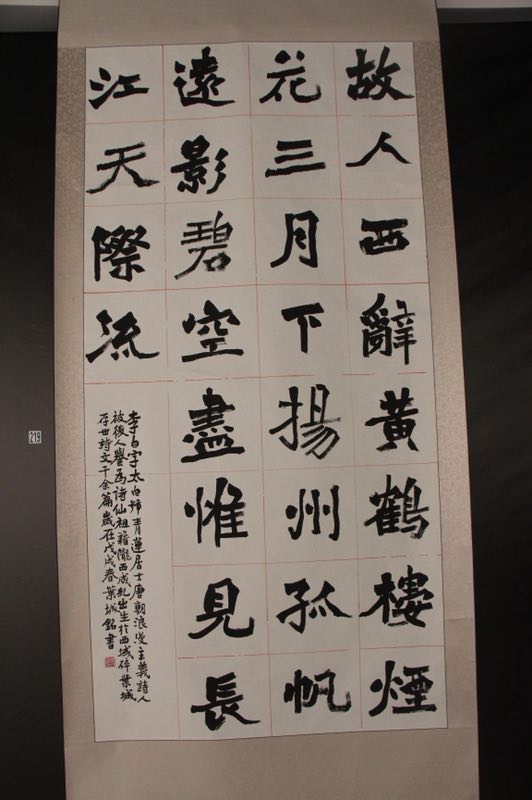 故人西辭黃鶴樓煙
花三月下揚州孤帆
遠影碧空盡惟見長
江天際流
李白字太白號青蓮居士唐朝浪漫主義詩人
被後人譽為诗仙祖籍隴西成紀出生於西域碎葉城
存世詩文千余篇歲在戊戌春葉城銘書
219